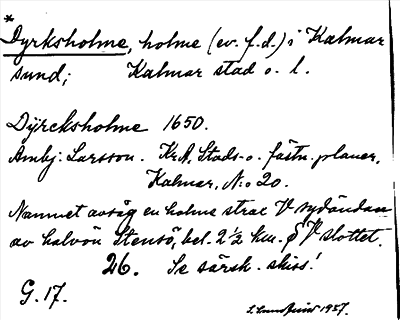 *
Dyrksholme, holme (ev. f.d.) i Kalmar
sund; Kalmar stad o. l.
Dÿrcksholme 1650.
Ambj: Larsson. KrA, Stads- o. fästn. planer,
Kalmar, N:o 20.
Namnet avsåg en holme strax V sydändan
av halvön Stensö, bel. 2 1/2 km. S V slottet.
26. Se särsk. skiss!
G. 17.
1937.